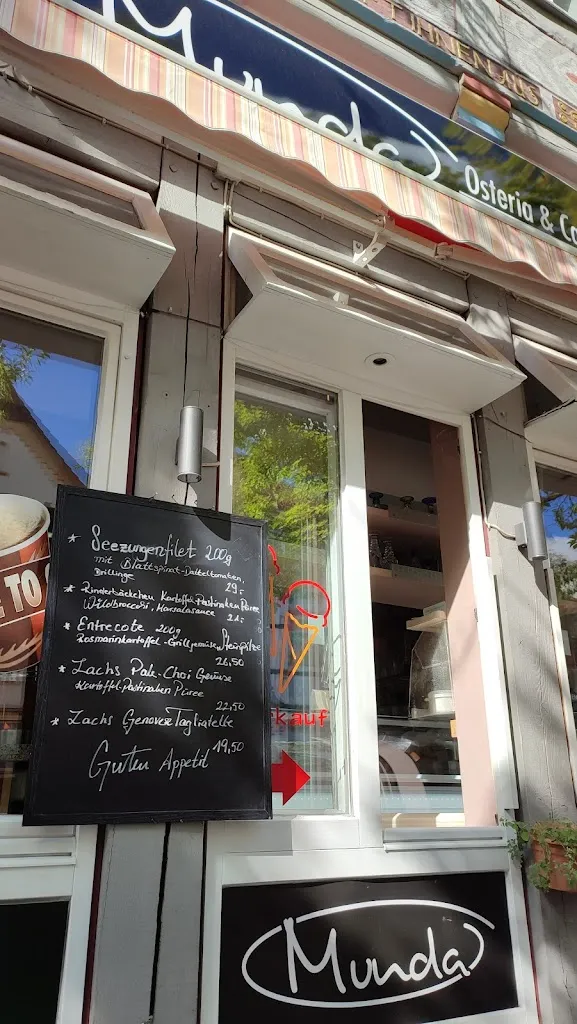 Munda
Osteria & Ca
TO
* Seezungenfilet 200g
mit Blattspinat-Datteltomaten,
Brillinge 29,-
* Rinderbäckchen Kartoffel-Pastinaken Püree
Wildbroccoli, Marsalasauce 24,-
* Entrecote 200g
Rosmarinkartoffel-Grillgemüse, Steinpilze
26,50
* Lachs Pak-Choi Gemüse
Kartoffel-Pastinaken Püree
22,50
* Lachs Genovese Tagliatelle
19,50
Guten Appetit
kauf
Munda